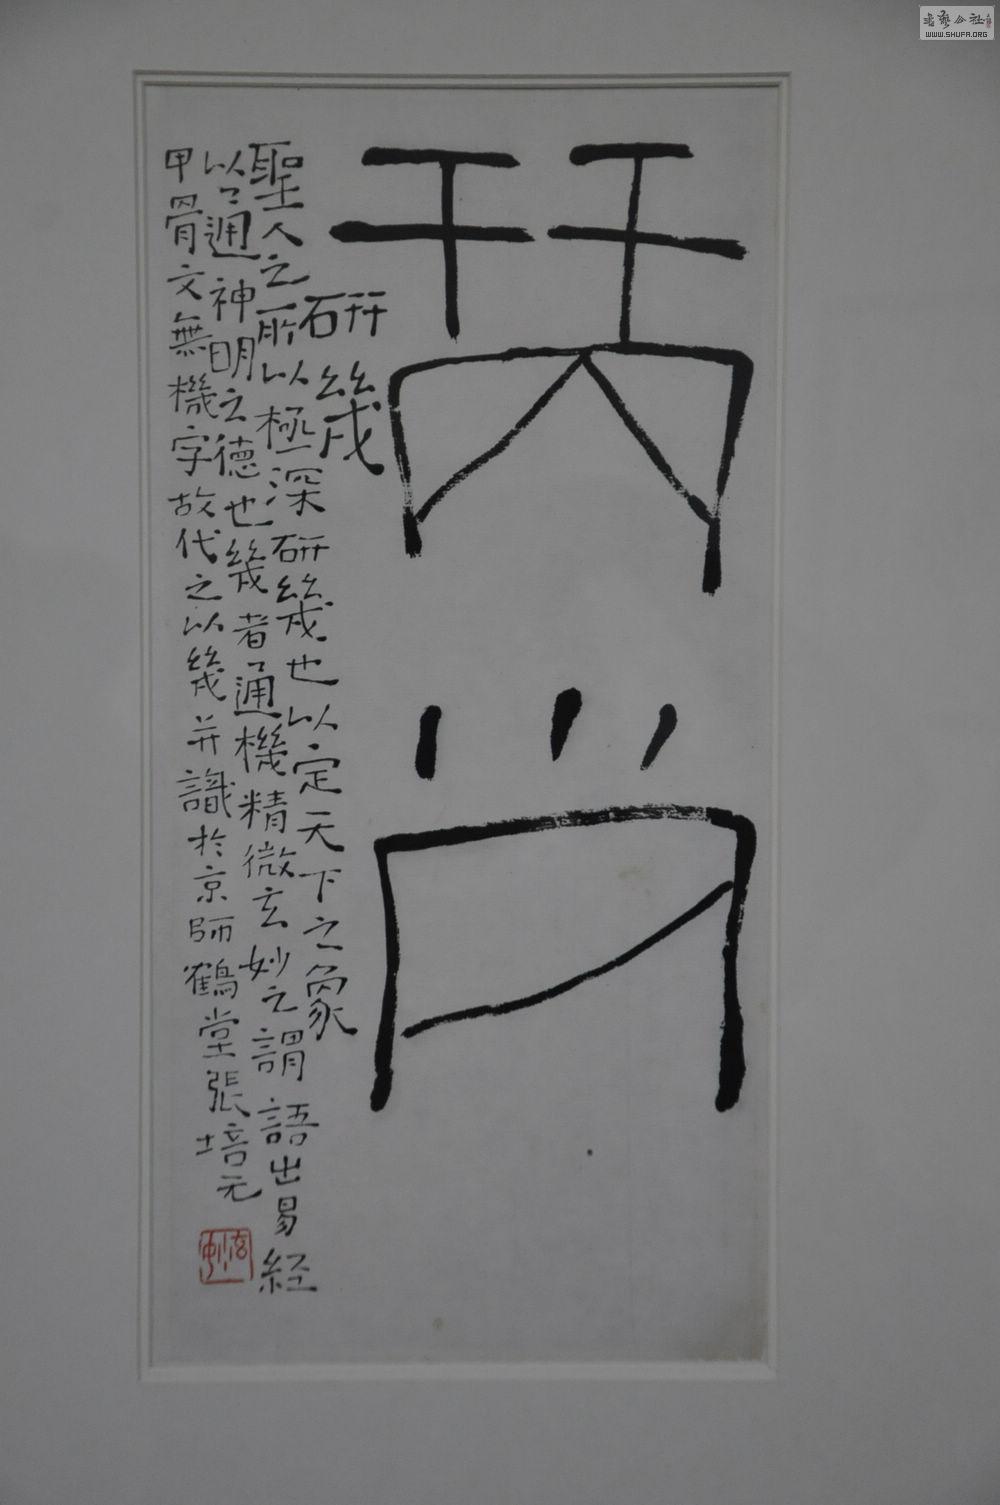 研幾
聖人之所以極深研幾也以定天下之象
以通神明之德也幾者通機精微玄妙之謂 語出易經
甲骨文無機字故代之以幾并識於京師鶴堂張培元
WWW.SHUFA.ORG